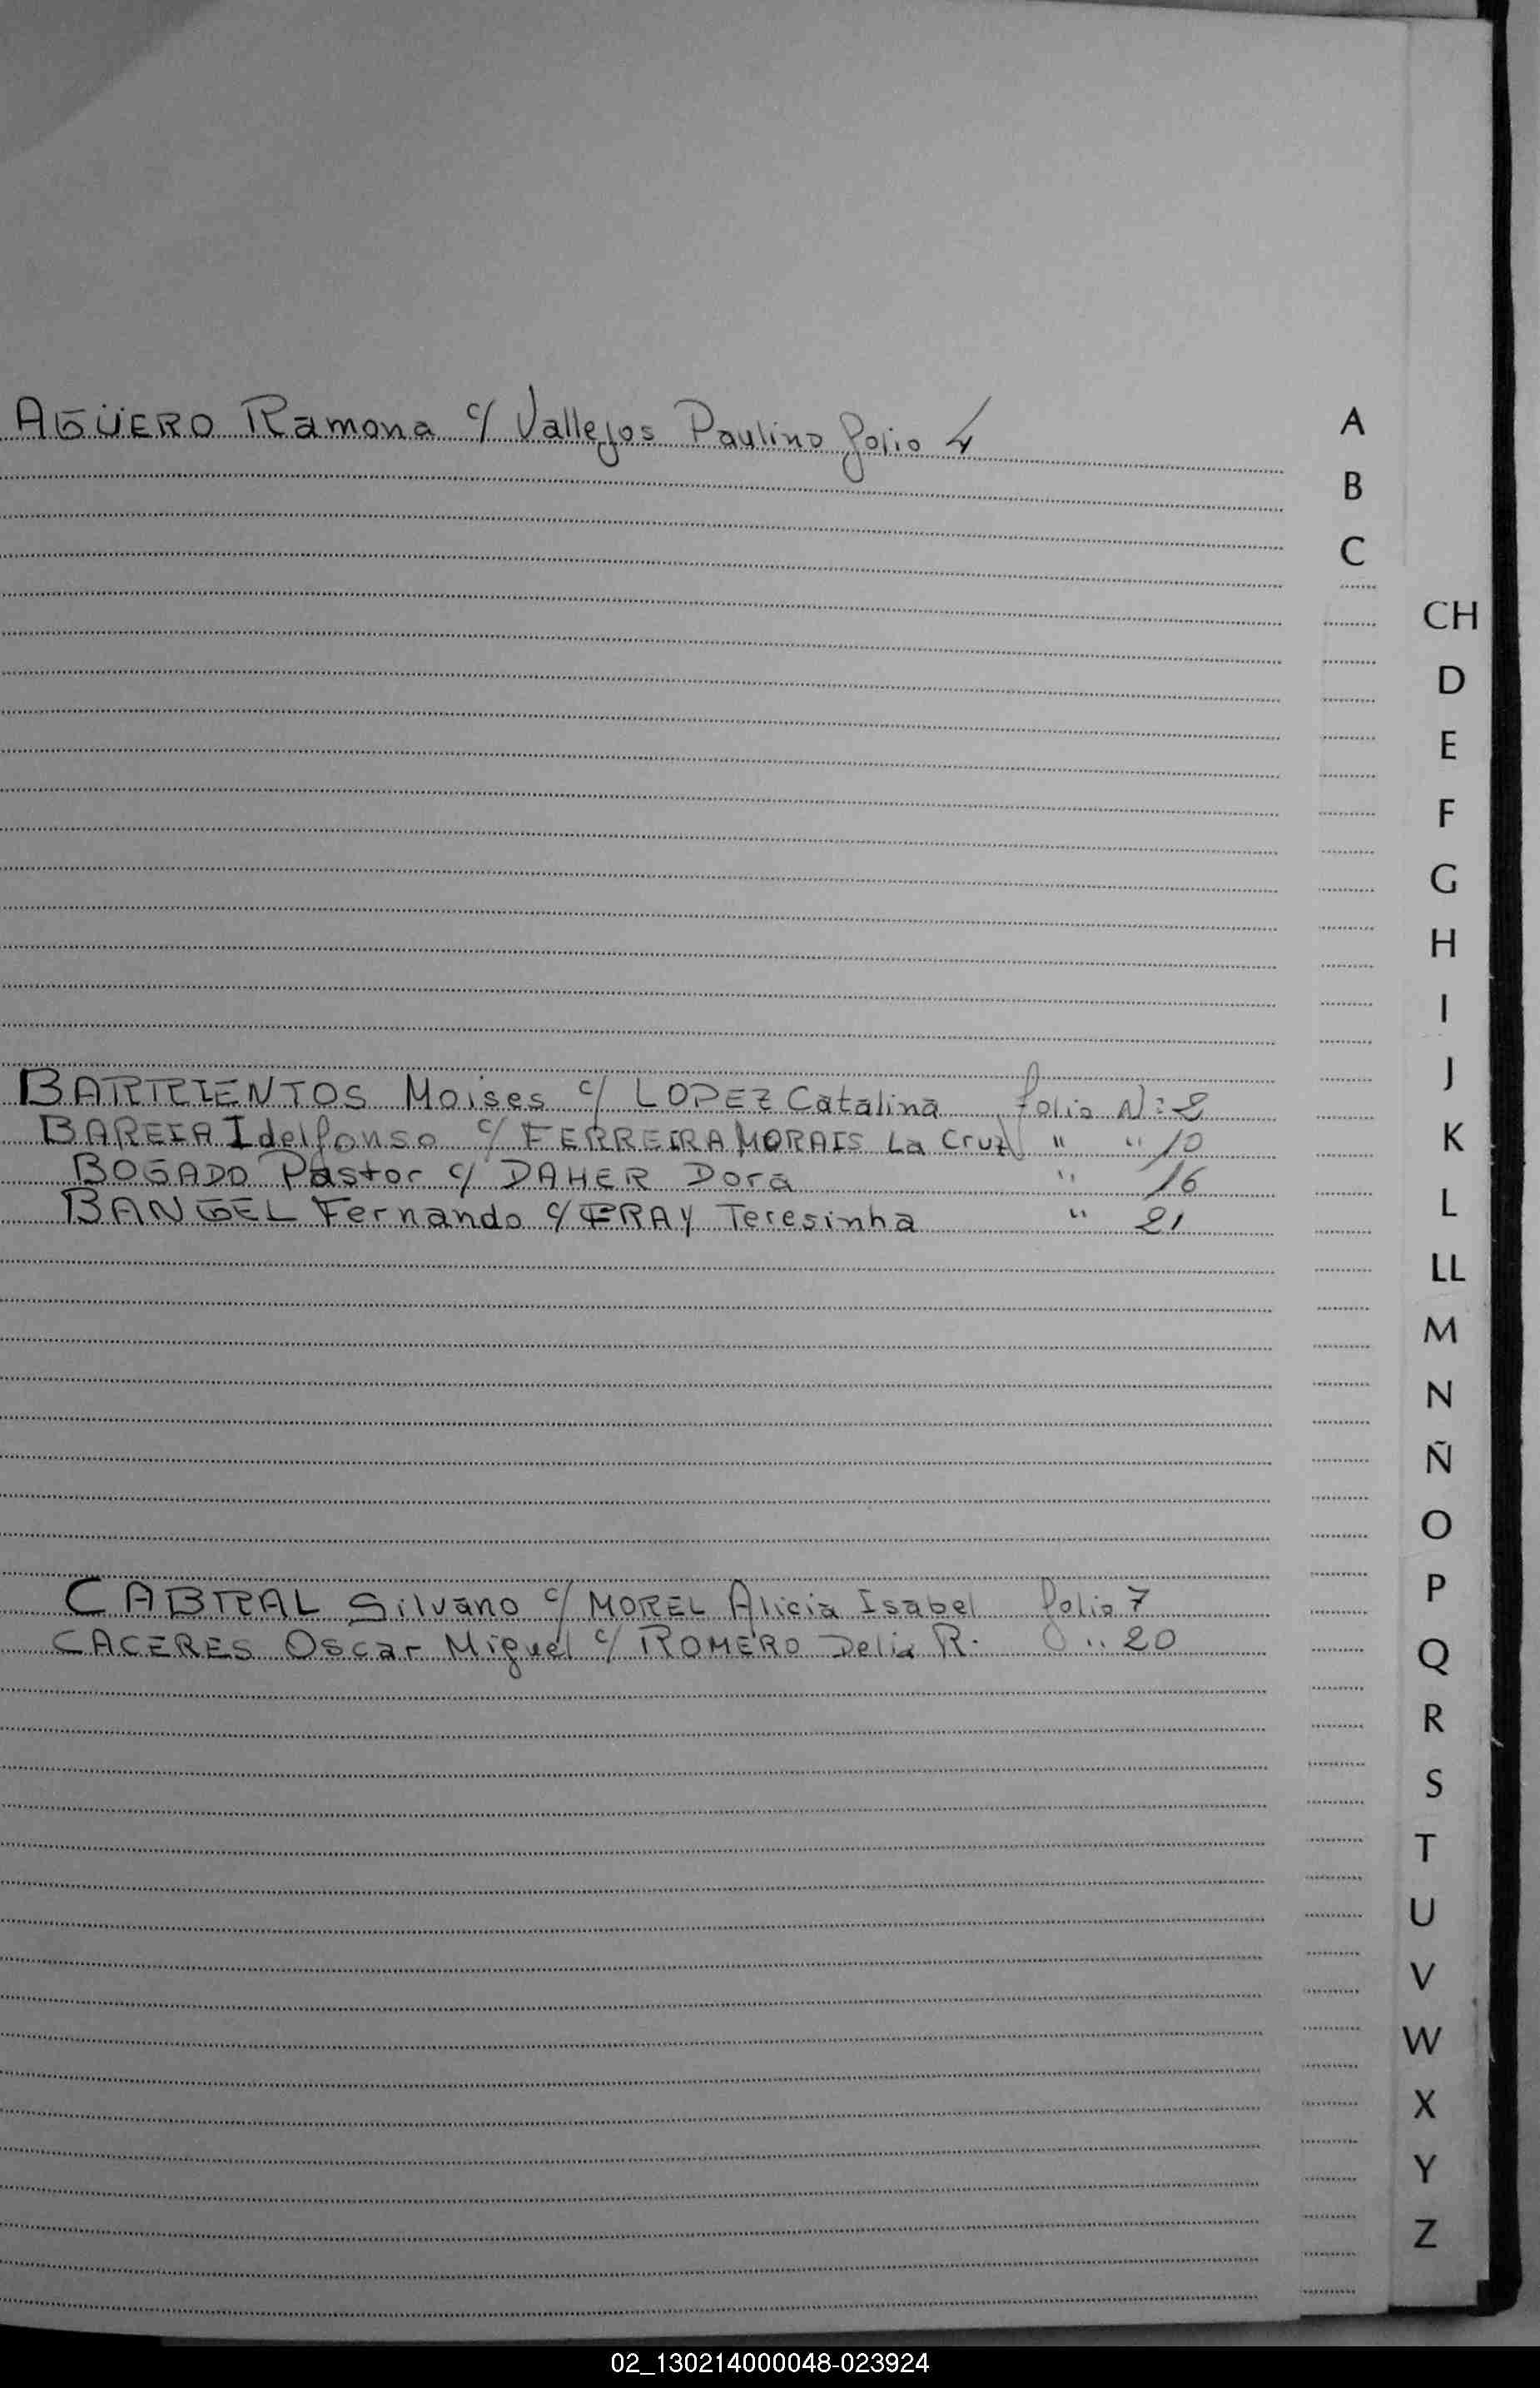 AGÜERO Ramona c/ Vallejos Paulino folio 4
A
B
C
CH
D
E
F
G
H
I
J
BARRIENTOS Moises c/ LOPEZ Catalina folio N: 2
BAREIA Idelfonso c/ FERREIRA MORAIS La Cruz " " 10
K
BOGADO Pastor c/ DAHER Dora " 16
BANGEL Fernando c/ FRAY Teresinha " 21
L
LL
M
N
Ñ
O
P
CABRAL Silvano c/ MOREL Alicia Isabel folio 7
CACERES Oscar Miguel c/ ROMERO Delia R. " 20
Q
R
S
T
U
V
W
X
Y
Z
02_130214000048-023924